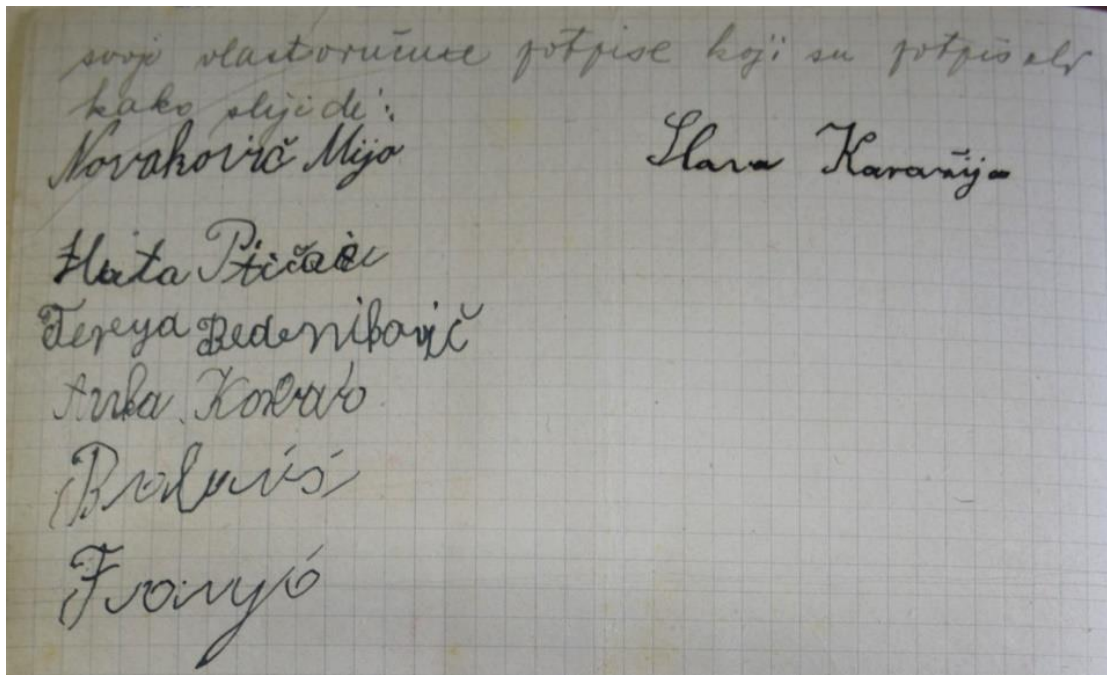 svoje vlastoručne potpise koji su potpisali
kako slijedi:
Novakovič Mijo
Slava Karavija
Hata
Tereza Bedeniković
Anka Kovač
Franjo